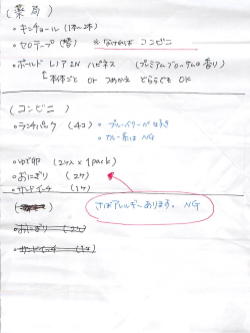 (薬局)
・キンチョール(1本〜2本)
・セロテープ(替) ※なければコンビニ
・ボールド レノアIN ハピネス (プレミアムブロッサムの香り)
本体ごと OK つめかえ どちらでも OK
(コンビニ)
・ランチパック (4コ) ・ブルーベリーが好き
・カレー系は NG
・ゆで卵 (2ケ入 × 1pack)
・おにぎり (2ケ)
・サンドイッチ (1ケ)
さばアレルギーあります。NG
・おにぎり (2ケ)
・サンドイッチ (1ケ)